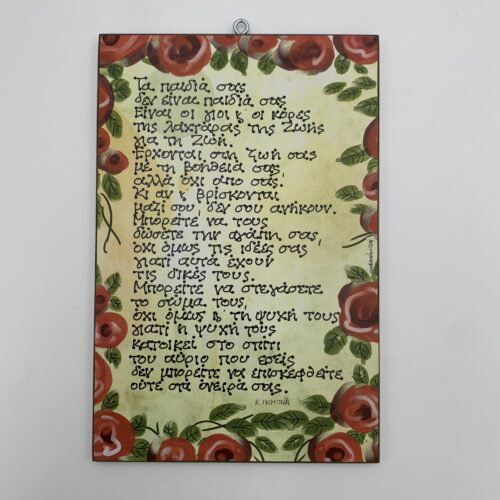 Τα παιδιά σας
δεν είναι παιδιά σας
Είναι οι γιοι & οι κόρες
της λαχτάρας της Ζωής
για τη Ζωή.
Έρχονται στη ζωή σας
με τη βοήθειά σας,
αλλά όχι από σας.
Κι αν & βρίσκονται
μαζί σου, δεν σου ανήκουν.
Μπορείτε να τους
δώσετε την αγάπη σας,
όχι όμως τις ιδέες σας
γιατί αυτά έχουν
τις δικές τους.
Μπορείτε να στεγάσετε
το σώμα τους,
όχι όμως & τη ψυχή τους
γιατί η ψυχή τους
κατοικεί στο σπίτι
του αύριο που εσείς
δεν μπορείτε να επισκεφθείτε
ούτε στα όνειρά σας.
Κ. ΓΚΙΜΠΡΑΝ